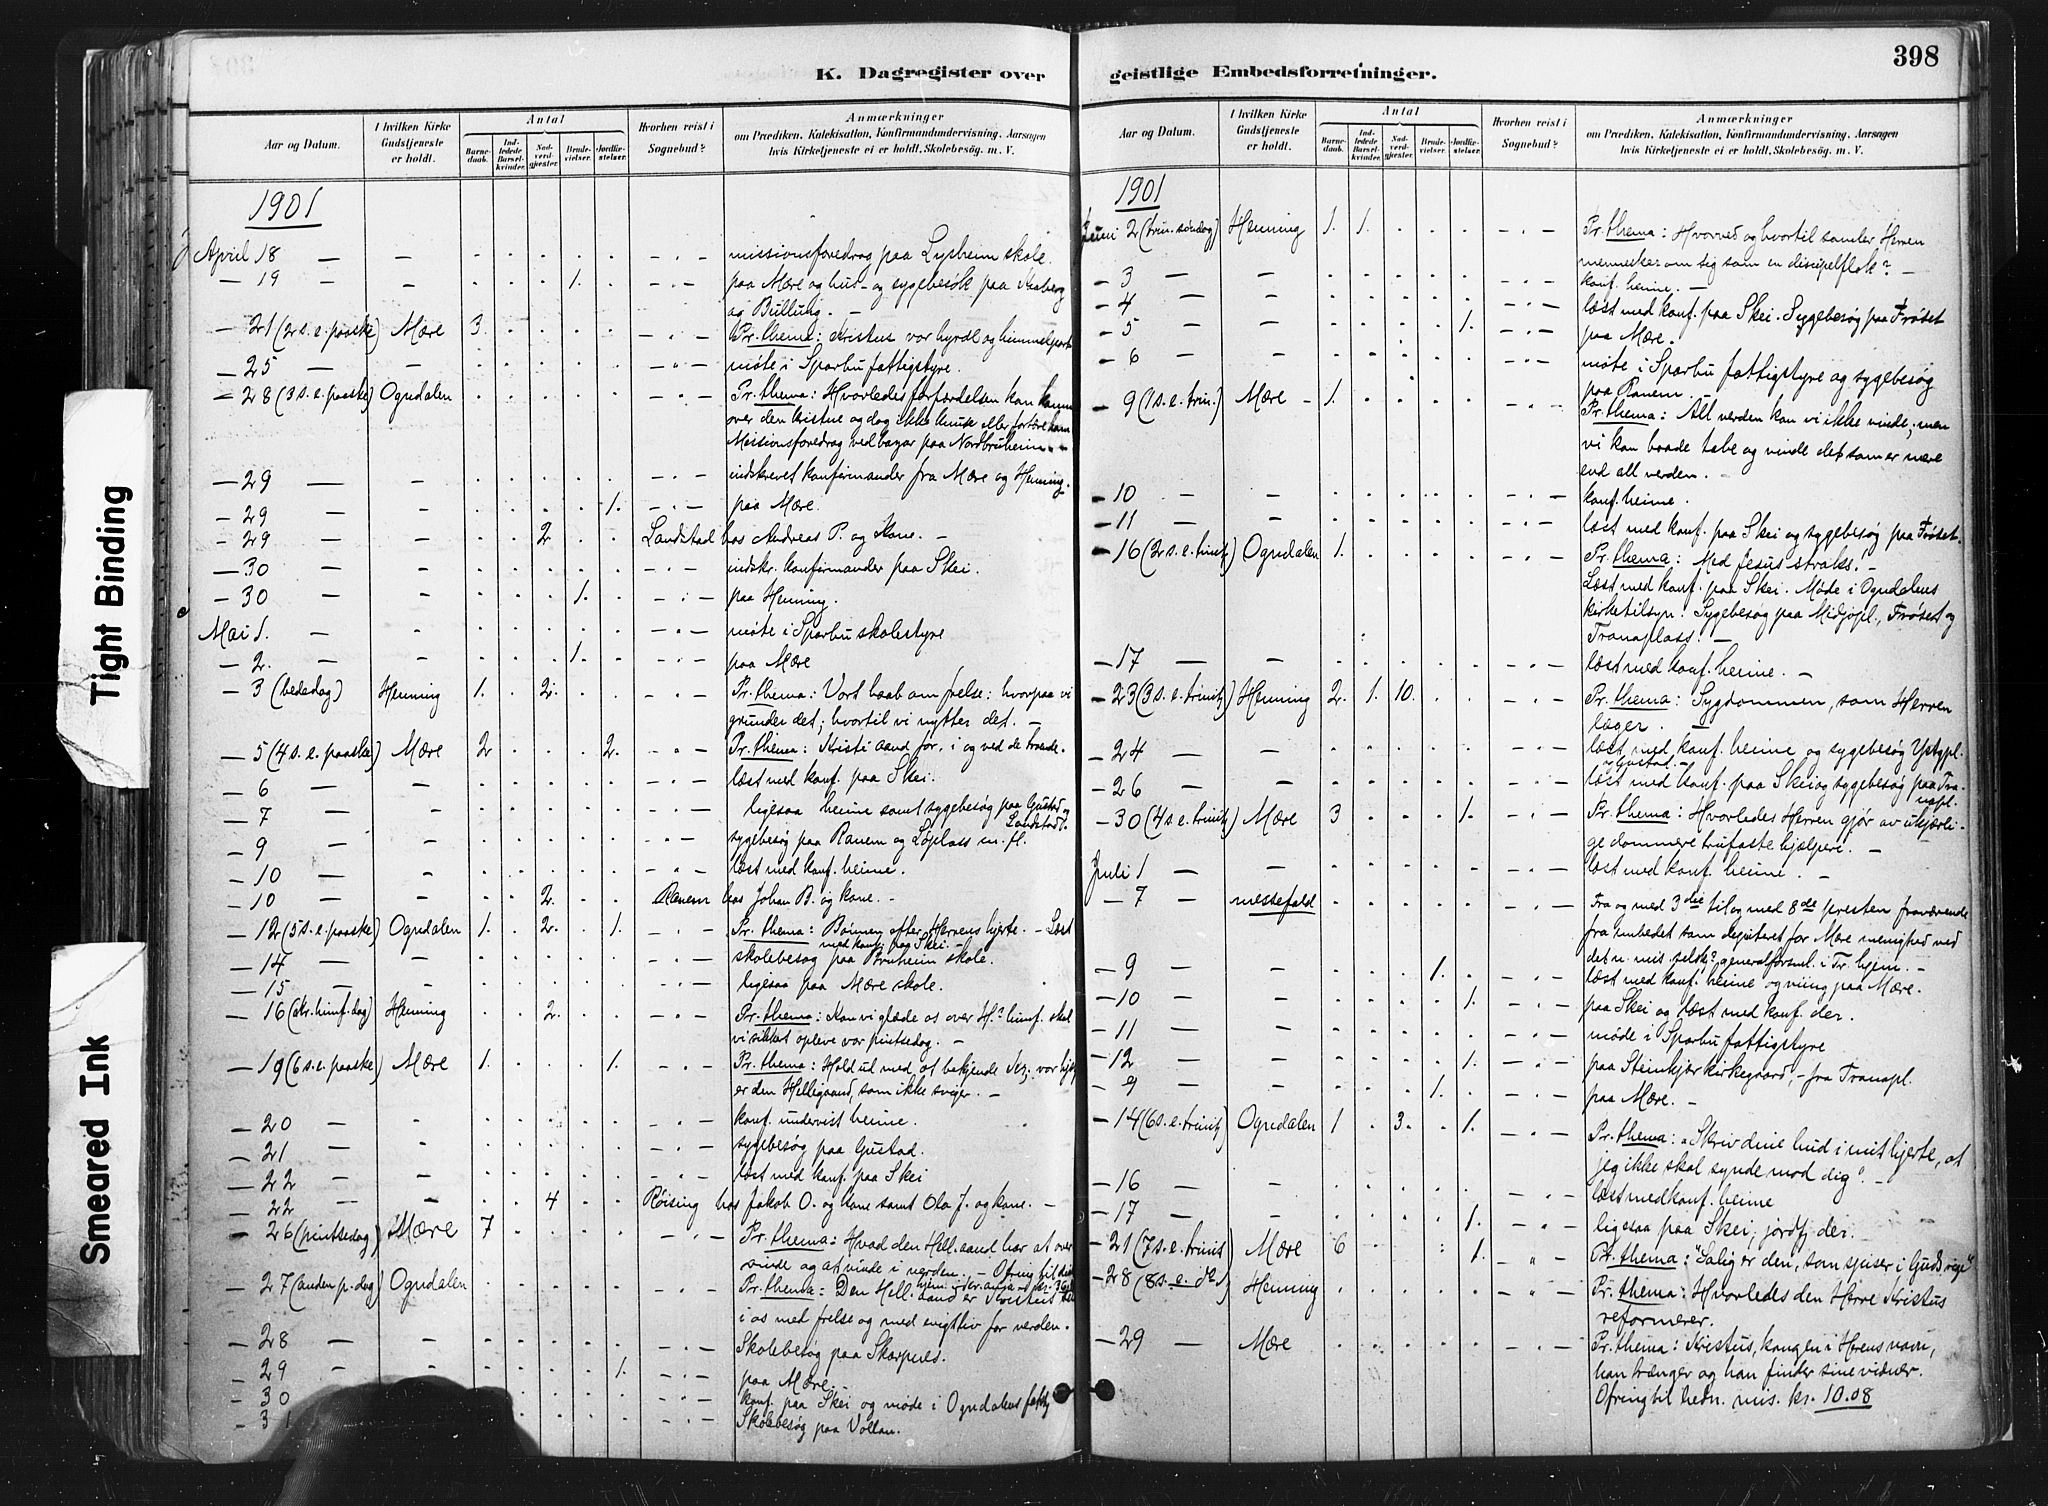 398
K. Dagregister over
geistlige Embedsforretninger.
Tight Binding
Smeared Ink
Aar og Datum.
I hvilken Kirke Gudstjeneste er holdt.
Antal
Barnedaab.
Indledede Barselkvinder.
Nadverdgjester.
Brudevielser.
Jordfæstelser.
Hvorhen reist i Sognebud?
Anmærkninger
om Prædiken, Katekisation, Konfirmandundervisning, Aarsagen
hvis Kirketjeneste ei er holdt, Skolebesøg. m. V.
1901
April 18 — — . . . . . - " - missionsforedrag paa Lysheim skole.
— 19 — — . . . 1. . - " - paa Mære og hus- og sygebesøk paa
og Bullung. —
— 21 (2 s. e. paaske) Mære 3. . . . . - " - Pr. thema: Kristus vor hyrde og
— 25 — — . . . . . - " - møte i Sparbu fattigstyre.
— 28 (3 s. e. paaske) Ogndalen . . . . . - " - Pr. thema: Hvorledes forfærdelsen kan komme
over den kristne og dog ikke knuse eller forføre ham
Missionsforedrag ved bazar paa Nordbruheim. -
— 29 — — . . . . . - " - indskrevet konfirmander fra Mære og Henning.
— 29 — — . . . . 1. - " - paa Mære.
— 29 — — . . 2. . . Landstad hos Andreas P. og Kone. —
— 30 — — . . . . . - " - indskr. konfirmander paa Skei.
— 30 — — . . . 1. . - " - paa Henning.
Mai 1. — — . . . . . - " - møte i Sparbu skolestyre
— 2. — — . . . 1. . - " - paa Mære
— 3 (bededag) Henning 1. . 2. . . - " - Pr. thema: Vort haab om frelse: hvorpaa vi
grunder det; hvortil vi nytter det. —
— 5 (4 s. e. paaske) Mære 2 . . . 2. - " - Pr. thema: Kristi aand for, i og ved de troende.
— 6 — — . . . . . - " - læst med konf. paa Skei.
— 7 — — . . . . . - " - ligesaa heime samt sygebesøg paa Gustad og
Landstad.
— 9 — — . . . . . - " - sygebesøg paa Ranem og Løplass m. fl.
— 10 — — . . . . . - " - læst med konf. heime.
— 10 — — . . 2. . . Ranem hos Johan B. og kone. —
— 12 (5 s. e. paaske) Ogndalen 1. . 2. . 1. - " - Pr. thema: Bønnen efter Herrens hjerte. - Læst
med konf. paa Skei. —
— 14 — — . . . . . - " - skolebesøg paa Bruheim skole.
— 15 — — . . . . . - " - ligesaa paa Mære skole.
— 16 (kr. himf. dag) Henning . . 2. . . - " - Pr. thema: Kan vi glæde os over H? himf. skal
vi sikkert opleve vor pintsedag. —
— 19 (6 s. e. paaske) Mære 1. . . . 1. - " - Pr. thema: Hold ud med at bekjende Jez; vor hjelp
er den Helligaand, som ikke sviger. —
— 20 — — . . . . . - " - konf. undervist heime.
— 21 — — . . . . . - " - sygebesøg paa Gustad.
— 22 — — . . . . . - " - læst med konf. paa Skei
— 22 — — . . 4 . . Røising hos Jakob O. og kone samt Ola J. og kone. —
— 26 (pintsedag) Mære 7 . . . . - " - Pr. thema: Hvad den Hell. aand har at over
vinde og at vinde i verden. - Ofring til
— 27 (anden p. dag) Ogndalen . . . . . - " - Pr. thema: Den Hell. aand er Kristus
i os med frelse og med evigt liv for verden.
— 28 — — . . . . . - " - Skolebesøg paa Skarpnes.
— 29 — — . . . . 1. - " - paa Mære. —
— 30 . . . . . - " - konf. paa Skei og møde i Ogndalens
— 31 . . . . . - " - Skolebesøg paa Vollan.
Aar og Datum.
I hvilken Kirke Gudstjeneste er holdt.
Antal
Barnedaab.
Indledede Barselkvinder.
Nadverdgjester.
Brudevielser.
Jordfæstelser.
Hvorhen reist i Sognebud?
Anmærkninger
om Prædiken, Katekisation, Konfirmandundervisning, Aarsagen
hvis Kirketjeneste ei er holdt, Skolebesøg. m. V.
1901
Juni 2 (trin. søndag) Henning 1. 1. . . . - " - Pr. thema: Hvorved og hvortil samler Herren
mennesker om sig som en discipelflok? —
— 3 — — . . . . . - " - konf. heime. —
— 4 — — . . . . . - " - læst med konf. paa Skei. Sygebesøg paa Frøset
— 5 — — . . . . 1. - " - paa Mære.
— 6 — — . . . . . - " - møte i Sparbu fattigstyre og sygebesøg
paa Ranem.
— 9 (1 s. e. trin.) Mære 1. . . . . - " - Pr. thema: Alt verden kan vi ikke vinde; men
vi kan baade tabe og vinde det som er mere
end all verden. —
— 10 — — . . . . . - " - konf. heime.
— 11 — — . . . . . - " - læst med konf. paa Skei og sygebesøg paa Frøset.
— 16 (2 s. e. trinit) Ogndalen 1. . . . . - " - Pr. thema: Med Jesus straks. —
Læst med konf. paa Skei. Møde i Ogndalens
kirketilsyn. Sygebesøg paa Midjopl., Frøset og
Tranaplass. —
— 17 — — . . . . . - " - læst med konf. heime. —
— 23 (3 s. e. trinit) Henning 2. 1. 10. . . - " - Pr. thema: Sygdommen, som Herren
læger. —
— 24 — — . . . . . - " - læst med konf. heime og sygebesøg Ystgpl.
og Gustad. —
— 26 — — . . . . . - " - læst med konf. paa Skei og sygebesøg paa Tra-
napl.
— 30 (4 s. e. trinit) Mære 3 . . . 1. - " - Pr. thema: Hvorledes Herren gjør av ukjærli-
ge dommere trufaste hjælpere. —
Juli 1 — — . . . . . - " - læst med konf. heime. —
— 7 — messefald . . . . . - " - Fra og med 3die til og med 8de presten fraværende
fra embedet som deputeret for Mære menighed ved
det n. mis. selsk? generalforsml. i Tr. hjem. —
— 9 — — . . . 1. . - " - læst med konf. heime og viing paa Mære.
— 10 — — . . . . 1. - " - paa Skei og læst med konf. der.
— 11 — — . . . . . - " - møde i Sparbu fattigstyre
— 12 — — . . . . 1. - " - paa Steinkjær kirkegaard, - fra Tranapl.
— 9 — — . . . 1. . - " - paa Mære. —
— 14 (6 s. e. trinit) Ogndalen 1 . 3. . 1. - " - Pr. thema: "Skriv dine bud i mit hjerte, at
jeg ikke skal synde mod dig". —
— 16 — — . . . . . - " - læst med konf. heime
— 17 — — . . . . 1. - " - ligesaa paa Skei; jordf. der.
— 21 (7 s. e. trinit) Mære 6 . . . 1. " Pr. thema: "Salig er den, som spiser i Guds rige"
— 28 (8 s. e. do) Henning . . . . . - " - Pr. thema: Hvorledes den Herre Kristus
reformerer.
— 29 — Mære . . . . . - " - Pr. thema: Kristus, kongen i Herrens navn,
han trænger og han finder sine vidner.
Ofring til hedn. mis. kr. 10.08